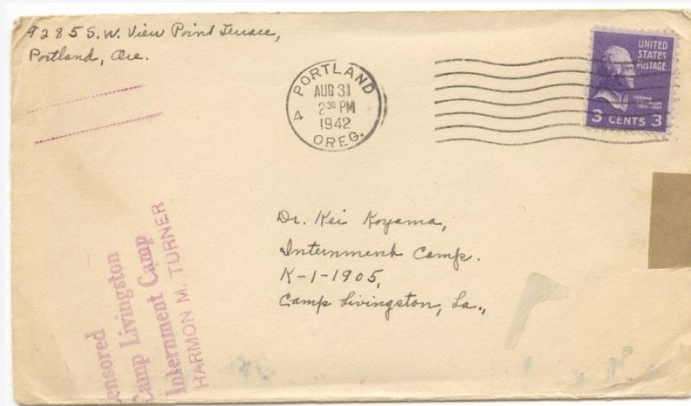 9285 S.W. View Point Terrace,
Portland, Ore.
PORTLAND
AUG 31
2 30 PM
1942
OREG.
4
UNITED
STATES
POSTAGE
3 CENTS 3
Dr. Kei Koyama,
Internment Camp.
K-1-1905,
Camp Livingston, La.,
ensored
Camp Livingston
Internment Camp
HARMON M. TURNER